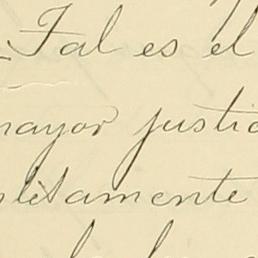 Tal es el
mayor justic
pletamente